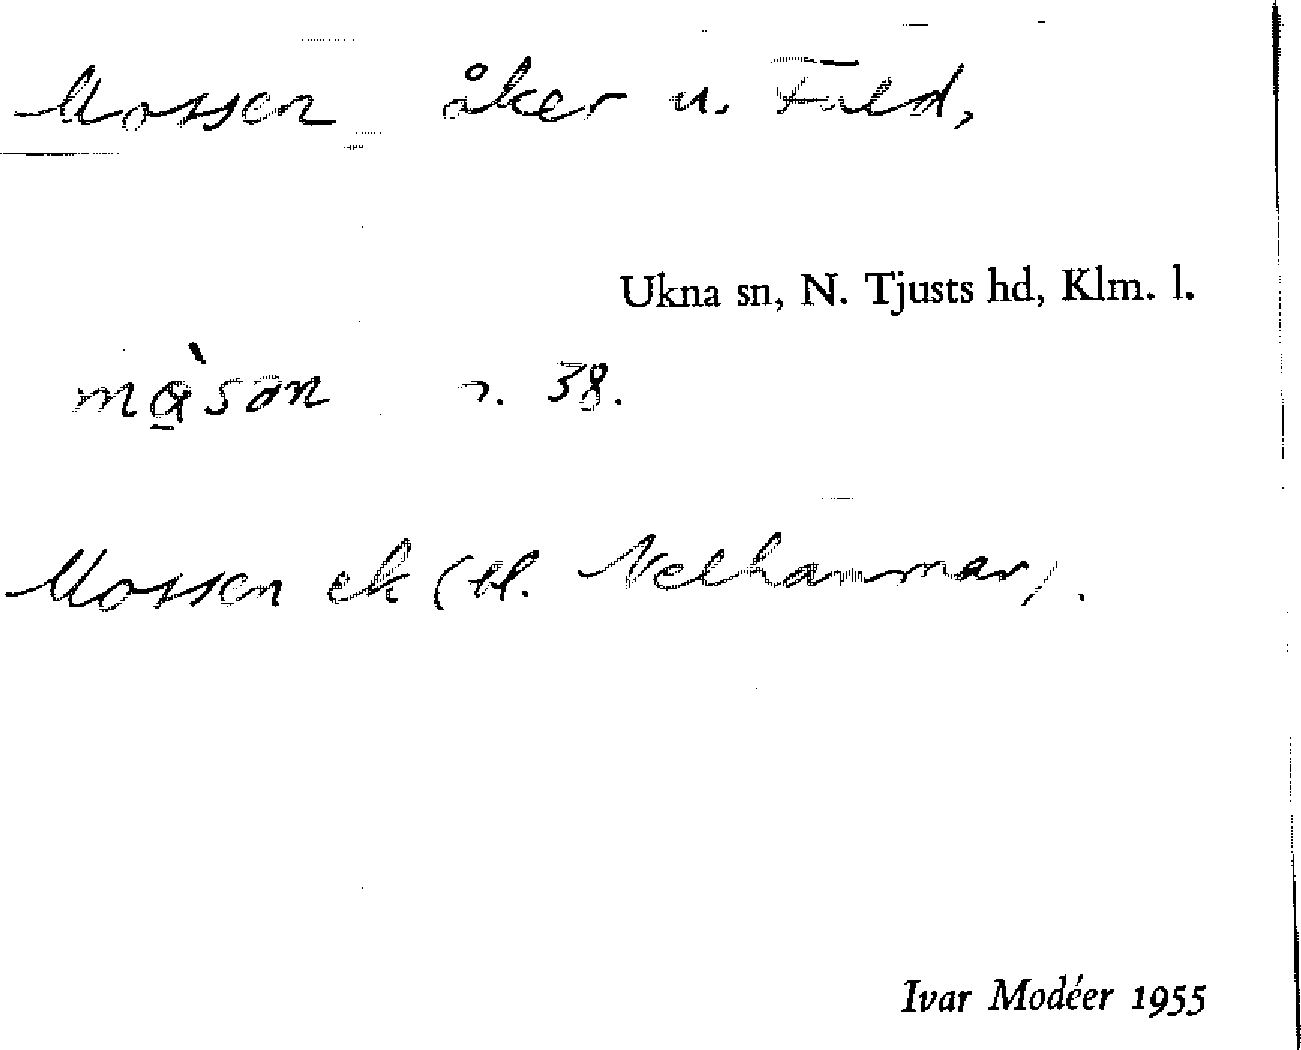 Mossen åker u. Fald,
Ukna sn, N. Tjusts hd, Klm. l.
mɑ̀sən n. 38.
Mossen ek (tl. Nelhammar).
Ivar Modéer 1955